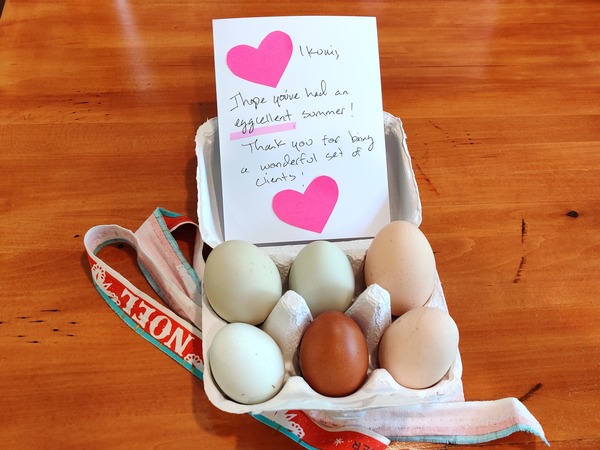 Ikoni,
I hope you've had an
eggcellent summer!
Thank you for being
a wonderful set of
clients!
NOEL